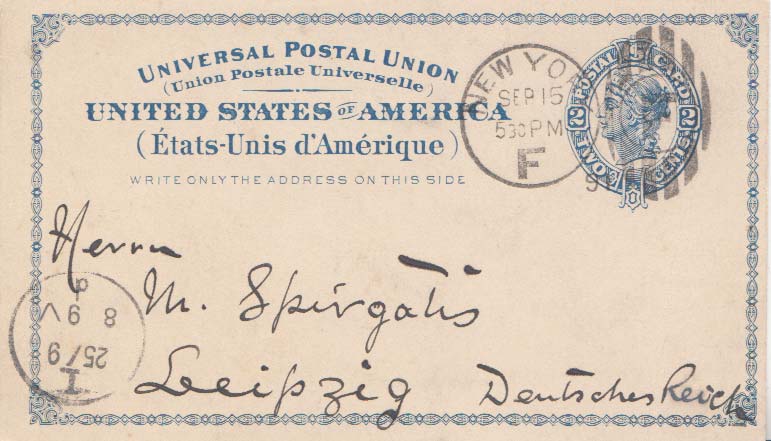 UNIVERSAL POSTAL UNION
(Union Postale Universelle)
UNITED STATES OF AMERICA
(États-Unis d'Amérique)
WRITE ONLY THE ADDRESS ON THIS SIDE
NEW YORK
SEP 15
530 PM
F
POSTAL CARD
2 2
TWO CENTS
Herrn
M. Spirgatis
Leipzig Deutsches Reich
I
25/9
8 9 V